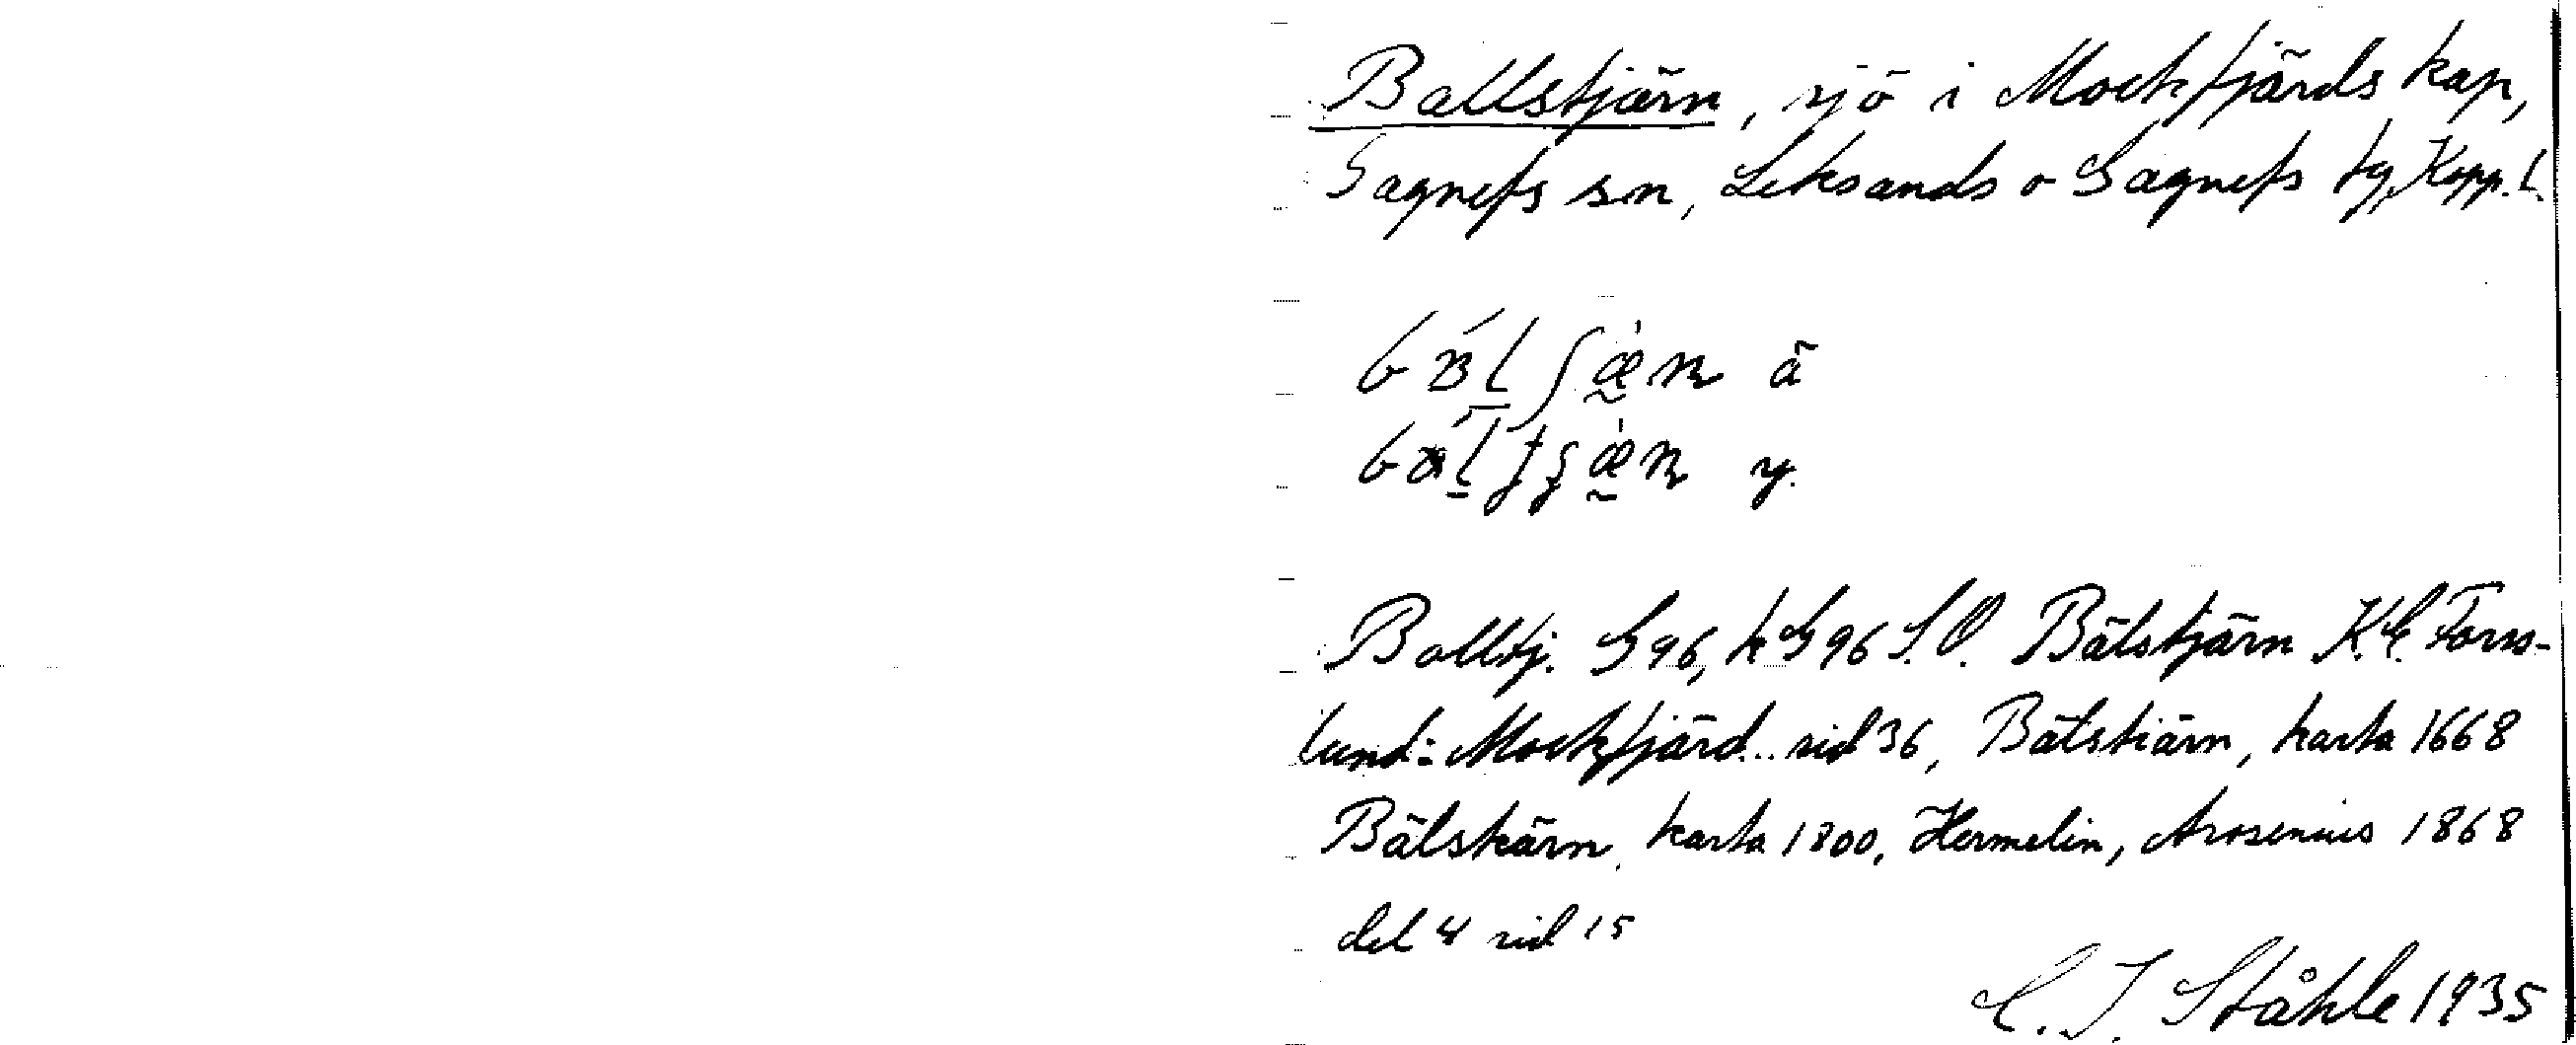 Ballstjärn, sjö i Mockfjärds kap,
Gagnefs sn, Leksands o Gagnefs tg, Kopp. l.
ä
y.
Balltj. G 96, k G 96 S.O. Bälstjärn K.E. Forss-
lund: Mockfjärd... sid 36, Bätstiärn, karta 1668
Bälstiärn, karta 1800, Hermelin, Arosenius 1868
del 4 sid 15
C. I. Ståhle 1935